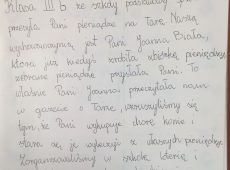 Klasa III b ze szkoły podstawowej
przesyła Pani pieniądze na Tarę. Naszą
wychowawczynią jest Pani Joanna Biała,
która już kiedyś zrobiła zbiórkę pieniędzy
zebrane pieniądze przysłała Pani. To
właśnie Pani Joanna przeczytała nam
w gazecie o Tarze, wzruszyliśmy się
tym, że Pani wykupuje chore konie i
stara się je wyleczyć z własnych pieniędzy.
Zorganizowaliśmy w szkole loterię i